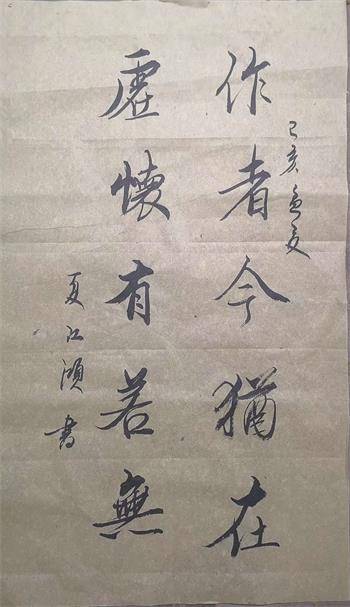 己亥孟夏
作者今猶在
虛懷有若無
夏江須書